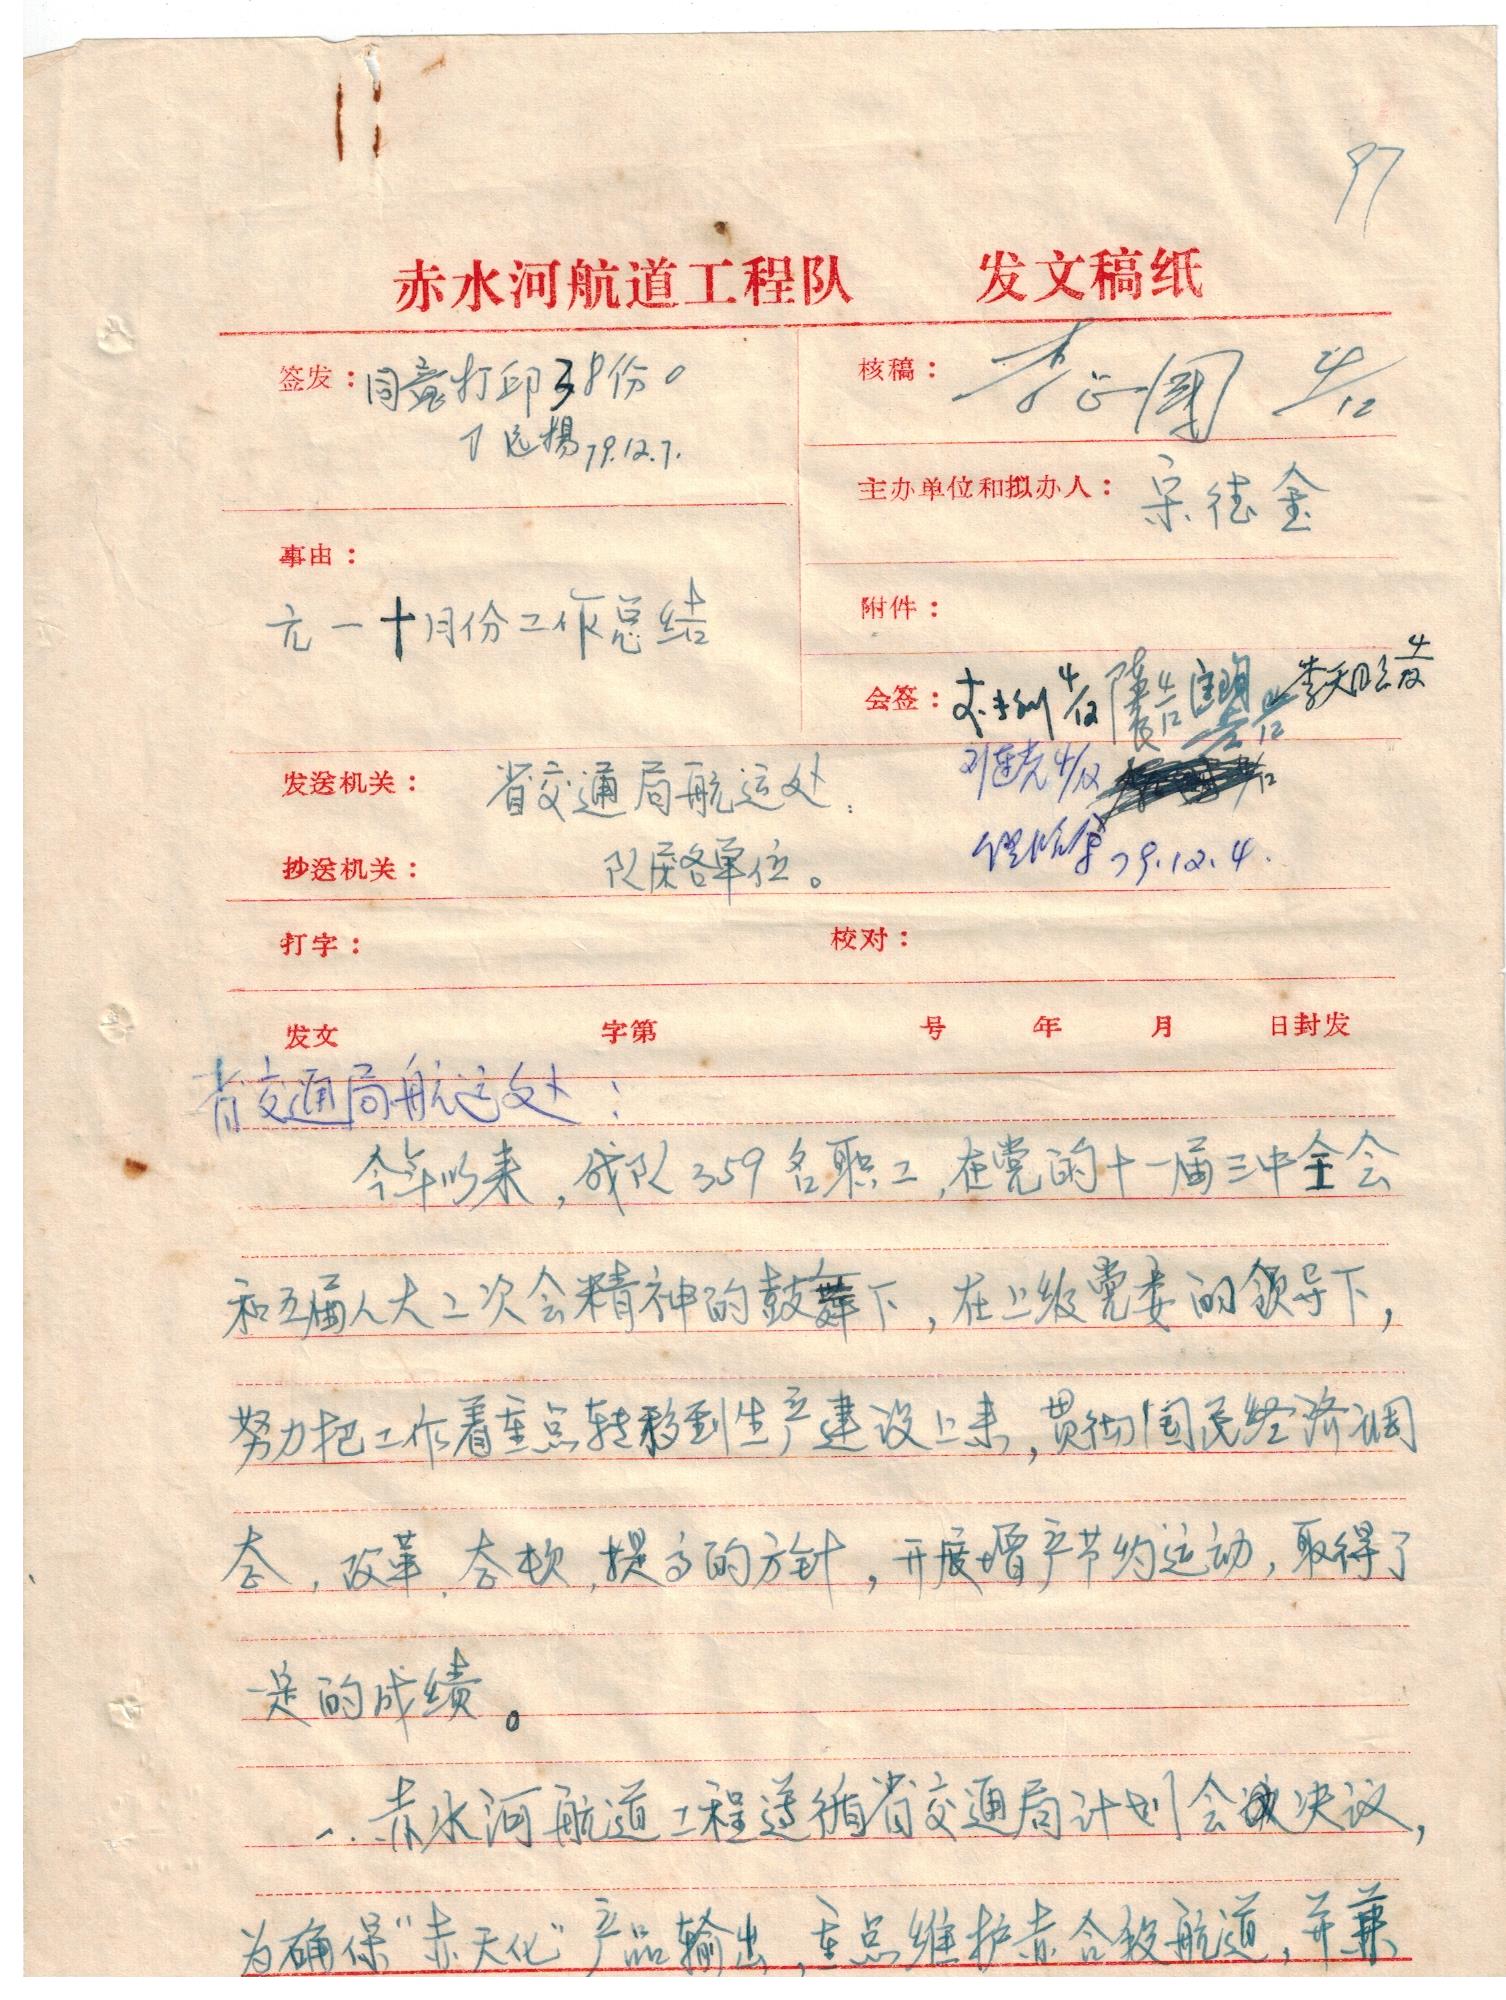 97
赤水河航道工程队 发文稿纸
签发：同意打印38份。
丁运扬79.12.7.
核稿：李正国 4/12
主办单位和拟办人：宋德金
事由：
元一十月份工作总结
附件：
会签：
李天明 4/12
发送机关：省交通局航运处.
刘连光 4/12
抄送机关：队属各单位。
79.12.4.
打字： 校对：
发文 字第 号 年 月 日封发
省交通局航运处：
今年以来，我队359名职工，在党的十一届三中全会
和五届人大二次会精神的鼓舞下，在上级党委的领导下，
努力把工作着重点转移到生产建设上来，贯彻国民经济调
整，改革，整顿，提高的方针，开展增产节约运动，取得了
一定的成绩。
一.赤水河航道工程遵循省交通局计划会决议，
为确保“赤天化”产品输出，重点维护赤合段航道，并兼